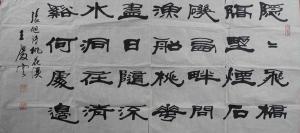 隱〻飛橋
隔壄煙石
磯西畔問
漁船桃華
盡日隨流
水洞在清
谿何處邊
張旭詩桃花溪